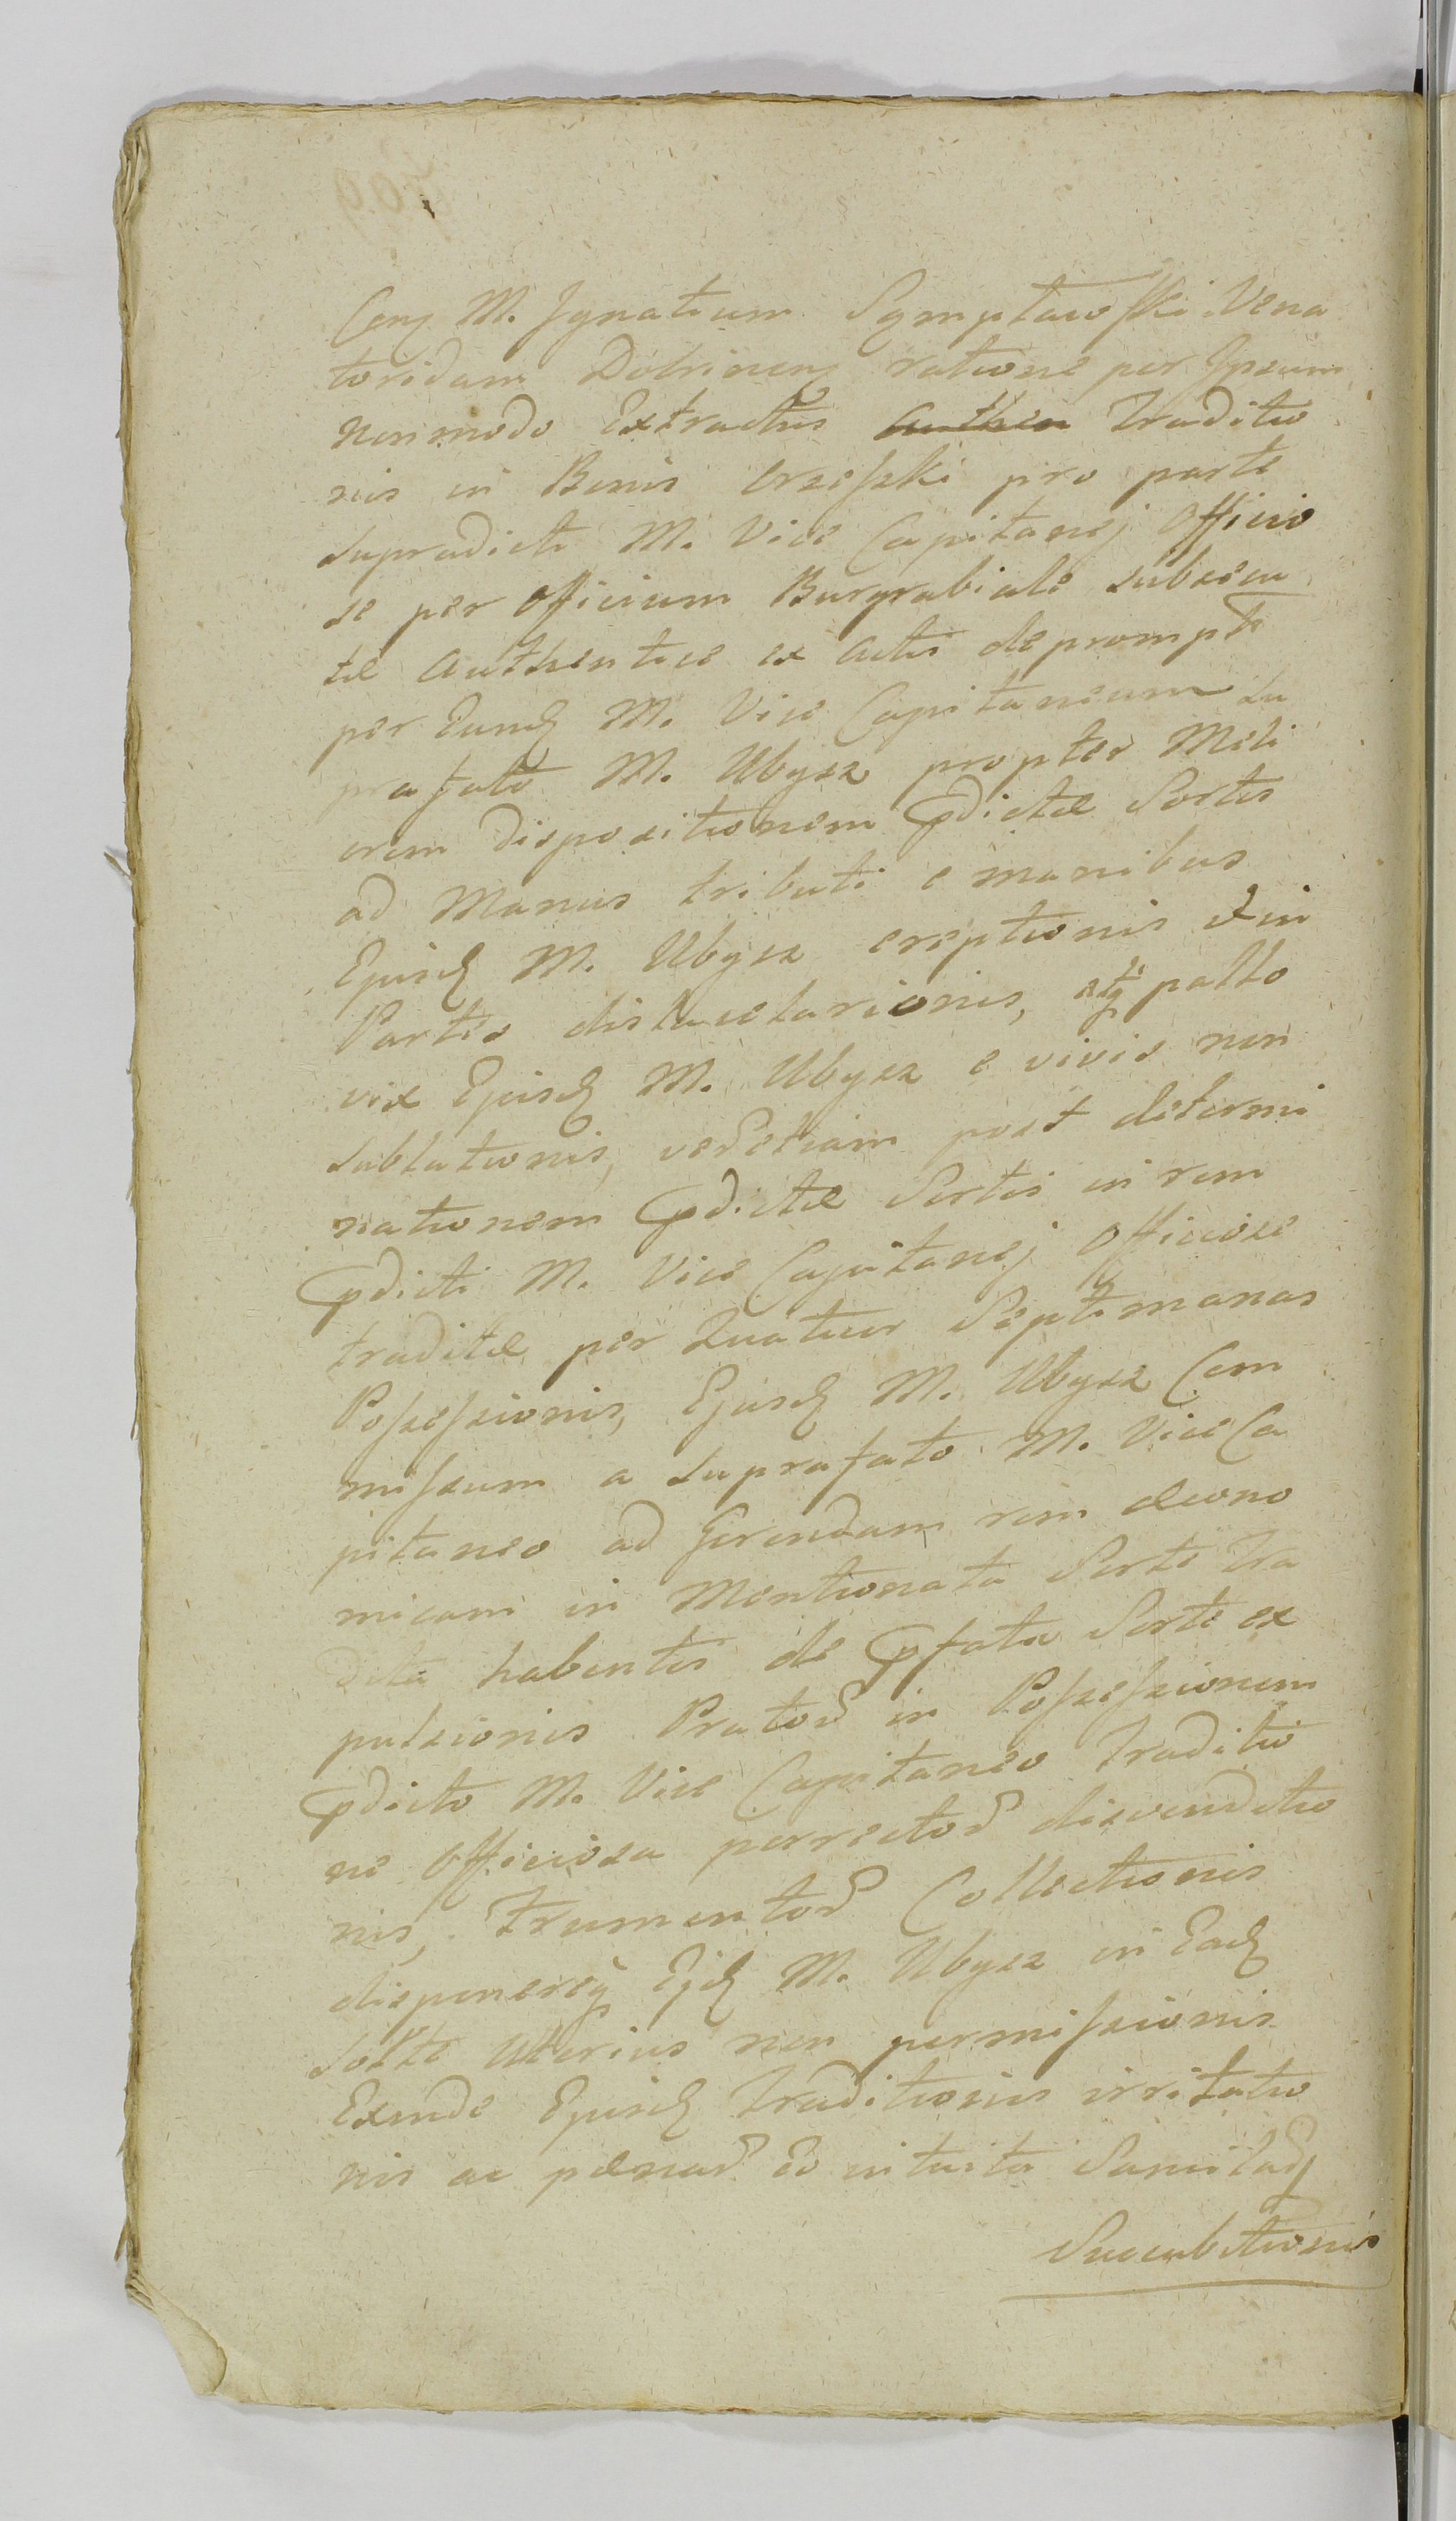 Conz M. Ignatium Symptawski Vena
toridam Dobrinenz ratione per Ipsum
nonmodo Extractus Authen Traditio
nis in Bonis Orzeszki pro parte
supradicti M. Vice Capitanej Officio
se per Officium Burgrabiale subsecu
tæ Authentice ex Actis deprompti
per Eund M. Vice Capitaneum su
prafato M. Ubysz propter Meli
orem dispositionem pdictæ Sortis
ad Manus tributi e manibus
Ejusd M. Ubysz ereptionis & in
Partes dislacerationis, atq pallo
vix Ejusd M. Ubysz e vivis non
sublationis, verl etiam post determi
nationem pdictæ Sortis in rem
pdicti M. Vice Capitanej Officiose
traditæ per Quatuor Septimanas
Possessionis, Ejusd M. Ubysz Com
missum a suprafato M. Vice Ca
pitaneo ad Gerendam rem œcono
micam in Mentionata Sorte Tra
dita habentis de pfata Sorte ex
pulsionis Prator in Possessionem
pdicto M. Vice Capitaneo Traditio
ne Officiosa perrector disvenditio
nis, Frumentor Collectionis
disponereq Ejd M. Ubysz in Ead
Sorte Ulterius non permissionis
Exinde Ejusd Traditionis irritatio
nis ac pœnar eo intuitu Sancitar
Succubitionis